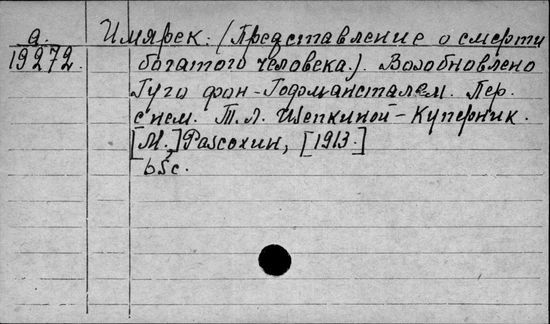 а. Имярек: (Представление о смерти
19272. богатого человека.). Возобновлено
Гуго фон-Гофмансталем. Пер.
с нем. Т. Л. Щепкиной-Куперник.
[М.,] Рассохин, [1913.]
65 с.